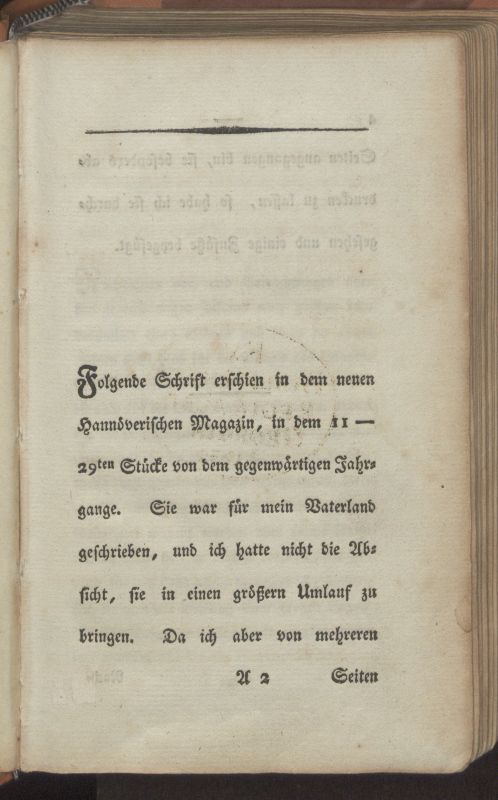 Folgende Schrift erschien in dem neuen
Hannöverischen Magazin, in dem 11 —
29ten Stücke von dem gegenwärtigen Jahr-
gange. Sie war für mein Vaterland
geschrieben, und ich hatte nicht die Ab-
sicht, sie in einen größern Umlauf zu
bringen. Da ich aber von mehreren
A 2 Seiten